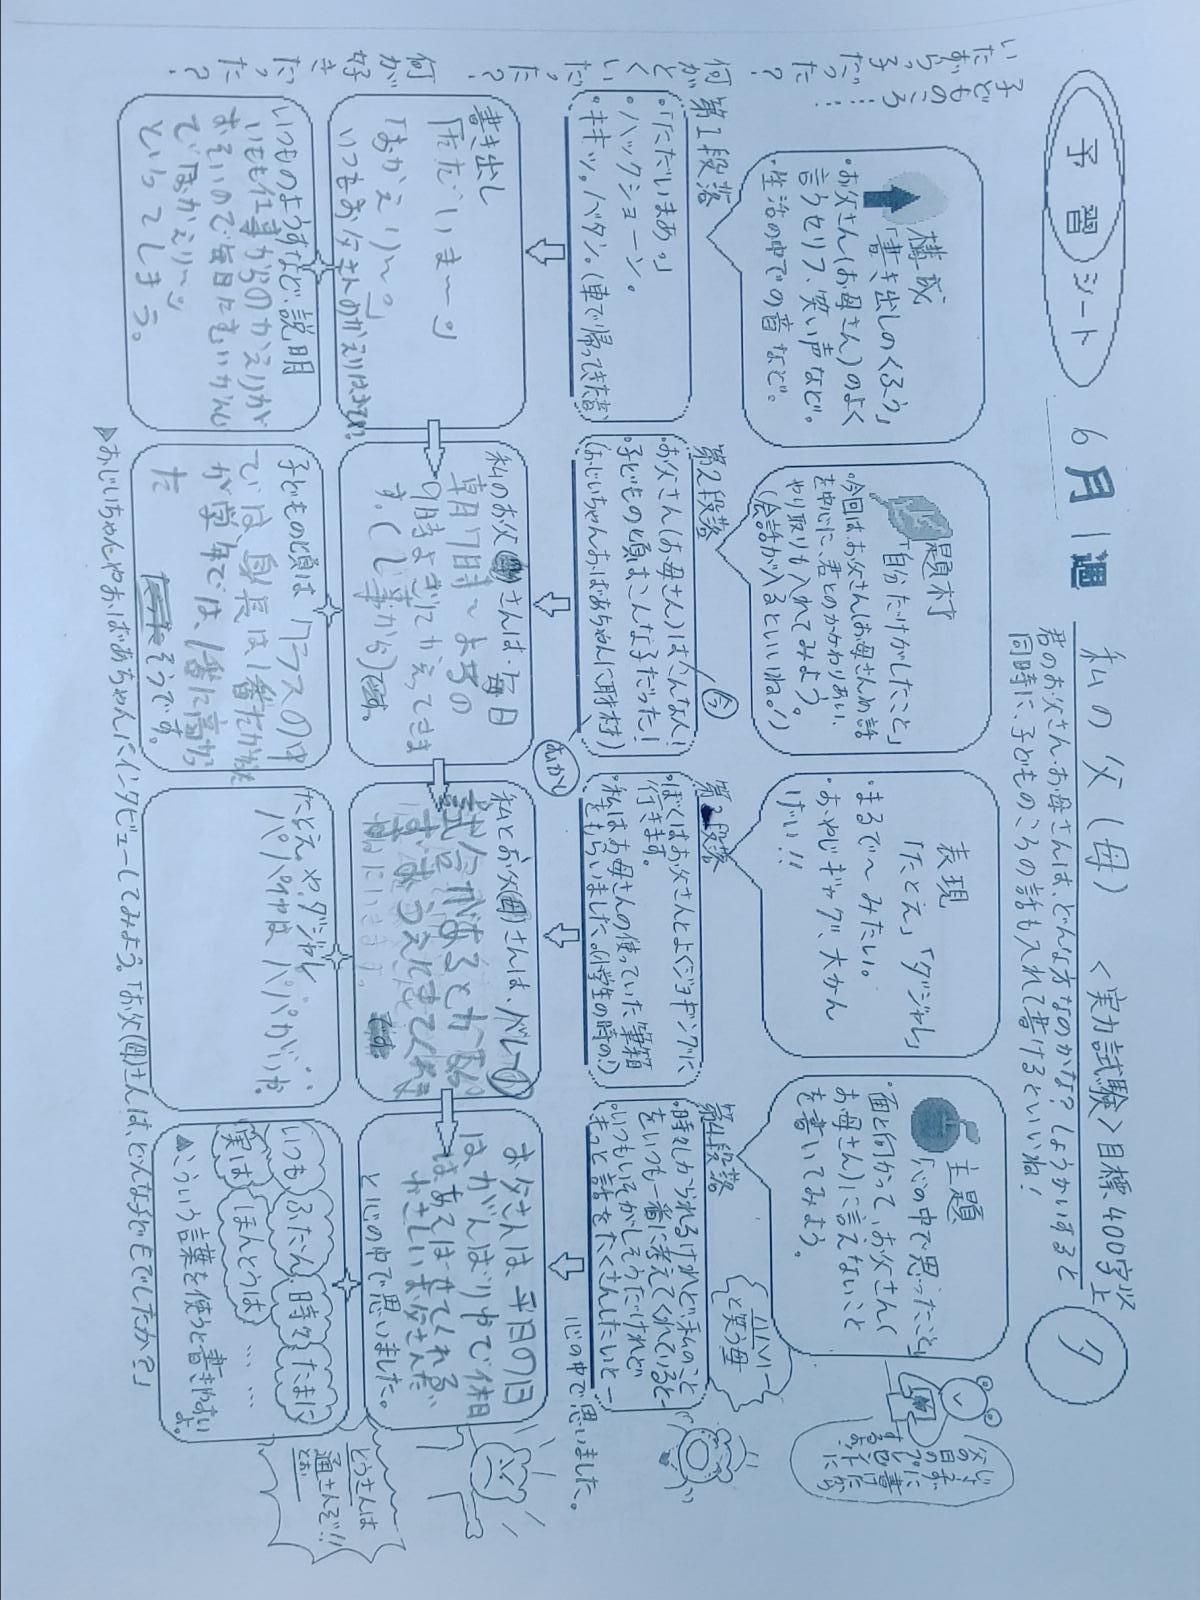 予習シート
6月1週
私の父(母)
<実力試験>目標400字以上
夕
君のお父さん・お母さんは、どんな方なのかな?しょうかいすると
同時に、子どものころの話も入れて書けるといいね!
構成
「書き出しのくふう」
・お父さん(お母さん)のよく
言うセリフ、笑い声など。
・生活の中での音など。
題材
「自分だけがしたこと」
今回は、お父さんお母さんの話
を中心に、君とのかかわりあい、
やり取りも入れてみよう。
(会話が入るといいね!)
表現
「たとえ」「ダジャレ」
・まるで〜みたい。
・おやじギャグ、大かん
げい!!
主題
「心の中で思ったこと」
・面と向かって、お父さん(
お母さん)に言えないこと
を書いてみよう。
第1段落
・「ただいまあ。」
・ハックショーン。
・キキッ。バタン。(車で帰ってきた音)
第2段落
・お父さん(お母さん)はこんな人!
今
・子どもの頃はこんな子だった!
(おじいちゃんおばあちゃんに取材)
むかし
第3段落
・ぼくはお父さんとよくジョギングに
行きます。
・私はお母さんの使っていた筆箱
をもらいました。(小学生の時の!)
第4段落
・時々しかられるけれど、私のこと
をいつも一番に考えてくれていると
・いつもいそがしそうだけれど
もっと話をたくさんしたいと―
心の中で思いました。
ハハハ―
と笑う母
書き出し
「ただいま〜」
「おかえり〜。」
いつもお父さんのかえりはおそい
私のお父(母)さんは、毎日
朝7時〜よるの
9時よぎてかえってきま
す。(し事から)です。
私とお父(母)さんは、バレーの
試合があるとかならず
お父さんは、平日の日
はがんばり中で休日
はあそばせてくれる
やさしいお父さんだ
と心の中で思いました。
いつものようすなど、説明
いつも仕事からのかえりが
おそいので毎日
で「おかえり〜」
といってしまう。
子どもの頃は クラスの中
では身長は1番だか
が学年では、1番に高かっ
た そうです。
たとえやダジャレ
パパイヤは パパがいや。
いつも ふだん 時々 たまに
実は ほんとうは … …
▲こういう言葉を使うと書きやすい
よ。
とうさんは
通さんぞ!!
とお
▶おじいちゃんやおばあちゃんにインタビューしてみよう。「お父(母)さんは、どんな子どもでしたか?」
子どものころ
いたずらっ子
だった?
何がとくいだった?
何が好きだった?